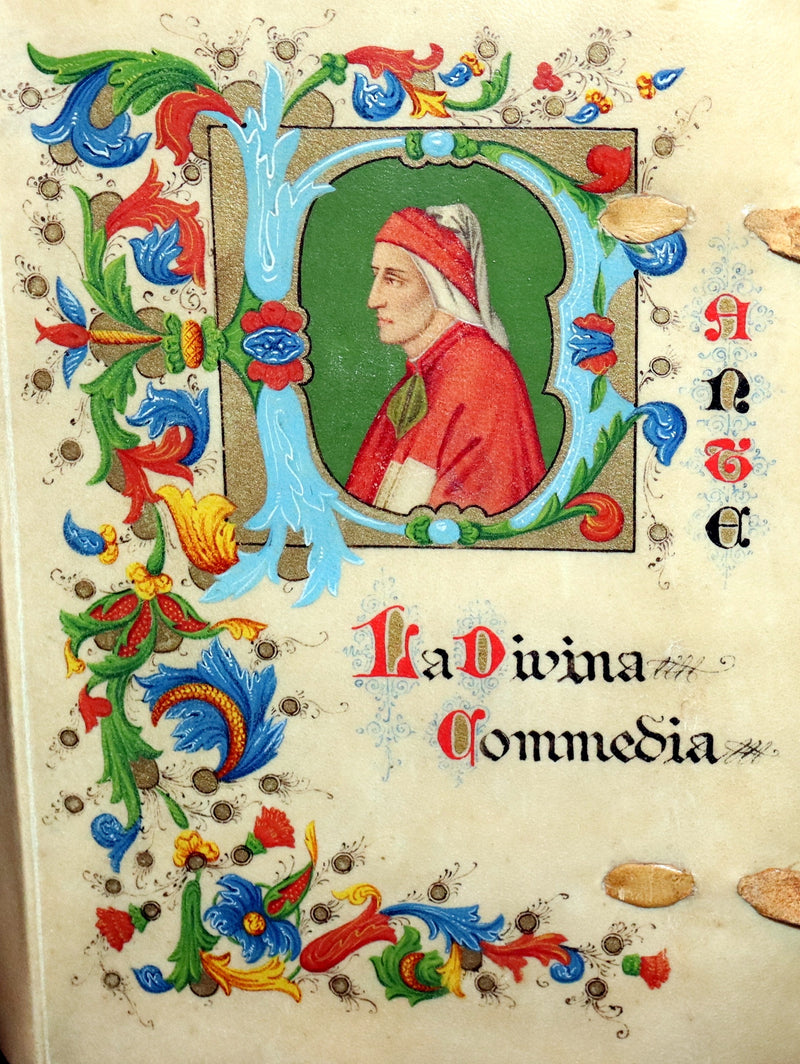 DANTE
La Divina
Commedia